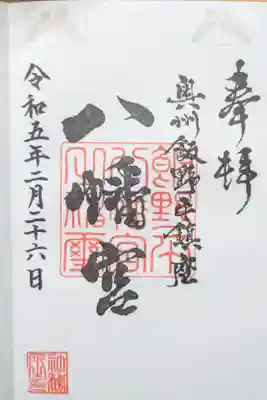 奉拝
奥州飯野平鎮座
八幡宮
令和五年二月二十六日